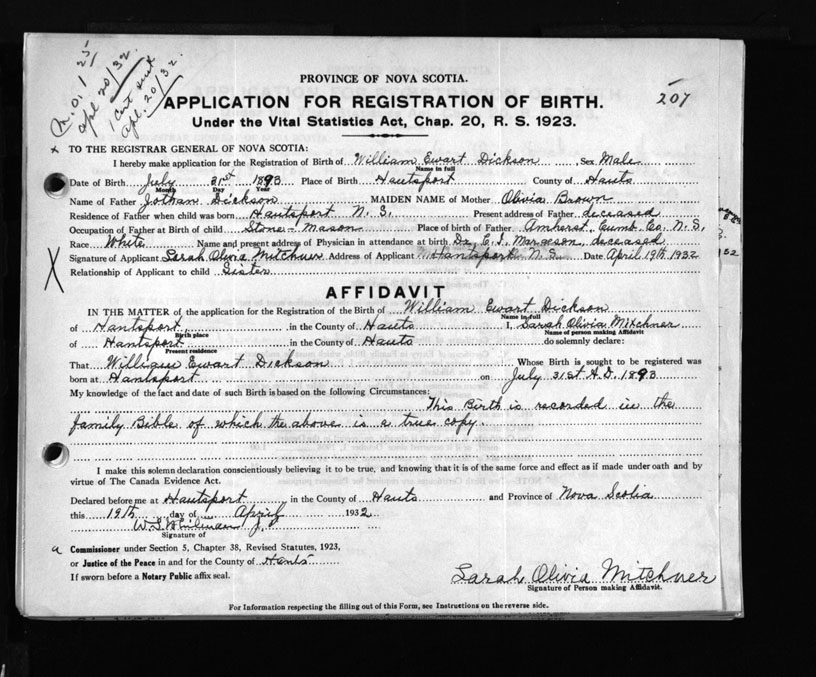 M.O. 1 25
Apl 20/32.
1 Cert sent
Apl. 20/32.
207
PROVINCE OF NOVA SCOTIA.
APPLICATION FOR REGISTRATION OF BIRTH.
Under the Vital Statistics Act, Chap. 20, R. S. 1923.
x TO THE REGISTRAR GENERAL OF NOVA SCOTIA:
I hereby make application for the Registration of Birth of William Ewart Dickson Sex Male
Name in full
Date of Birth July 31st 1893 Place of Birth Hantsport County of Hants
Month Day Year
Name of Father Jotham Dickson MAIDEN NAME of Mother Olivia Brown
Residence of Father when child was born Hantsport N. S. Present address of Father deceased
Occupation of Father at Birth of child Stone-Mason Place of birth of Father Amherst, Cumb. Co. N. S.
Race White Name and present address of Physician in attendance at birth Dr. C. I. Margeson, deceased
Signature of Applicant Sarah Olivia Mitchner Address of Applicant Hantsport N. S. Date April 19th 1932
Relationship of Applicant to child Sister
X
AFFIDAVIT
IN THE MATTER of the application for the Registration of the Birth of William Ewart Dickson
Name in full
of Hantsport in the County of Hants I, Sarah Olivia Mitchner
Birth place Name of person making Affidavit
of Hantsport in the County of Hants do solemnly declare:
Present residence
That William Ewart Dickson Whose Birth is sought to be registered was
born at Hantsport on July 31st A.D. 1893
My knowledge of the fact and date of such Birth is based on the following Circumstances:
This Birth is recorded in the
family Bible of which the above is a true copy.
I make this solemn declaration conscientiously believing it to be true, and knowing that it is of the same force and effect as if made under oath and by
virtue of The Canada Evidence Act.
Declared before me at Hantsport in the County of Hants and Province of Nova Scotia
this 19th day of April 1932
W. S. Whitman J.P.
Signature of
a Commissioner under Section 5, Chapter 38, Revised Statutes, 1923,
or Justice of the Peace in and for the County of Hants
If sworn before a Notary Public affix seal.
Sarah Olivia Mitchner
Signature of Person making Affidavit.
For Information respecting the filling out of this Form, see Instructions on the reverse side.